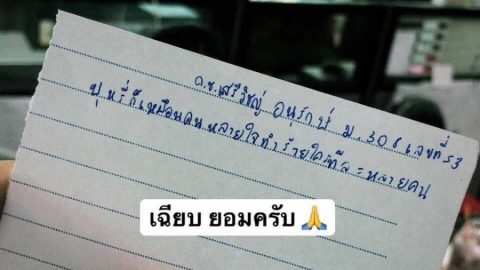 ด.ช.เสรีวิชญ์ อนุรักษ์ ม.306 เลขที่ 53
บุหรี่ก็เหมือนคนหลายใจทำร้ายใครทีละหลายคน
เฉียบ ยอมครับ 🙏